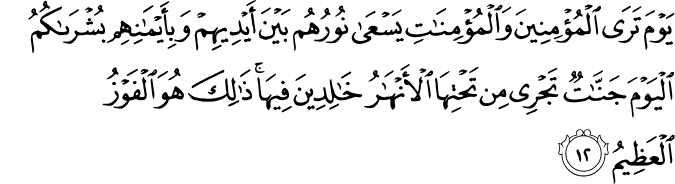 يَوْمَ تَرَى ٱلْمُؤْمِنِينَ وَٱلْمُؤْمِنَٰتِ يَسْعَىٰ نُورُهُم بَيْنَ أَيْدِيهِمْ وَبِأَيْمَٰنِهِم بُشْرَىٰكُمُ
ٱلْيَوْمَ جَنَّٰتٌ تَجْرِى مِن تَحْتِهَا ٱلْأَنْهَٰرُ خَٰلِدِينَ فِيهَا ۚ ذَٰلِكَ هُوَ ٱلْفَوْزُ
ٱلْعَظِيمُ ١٢